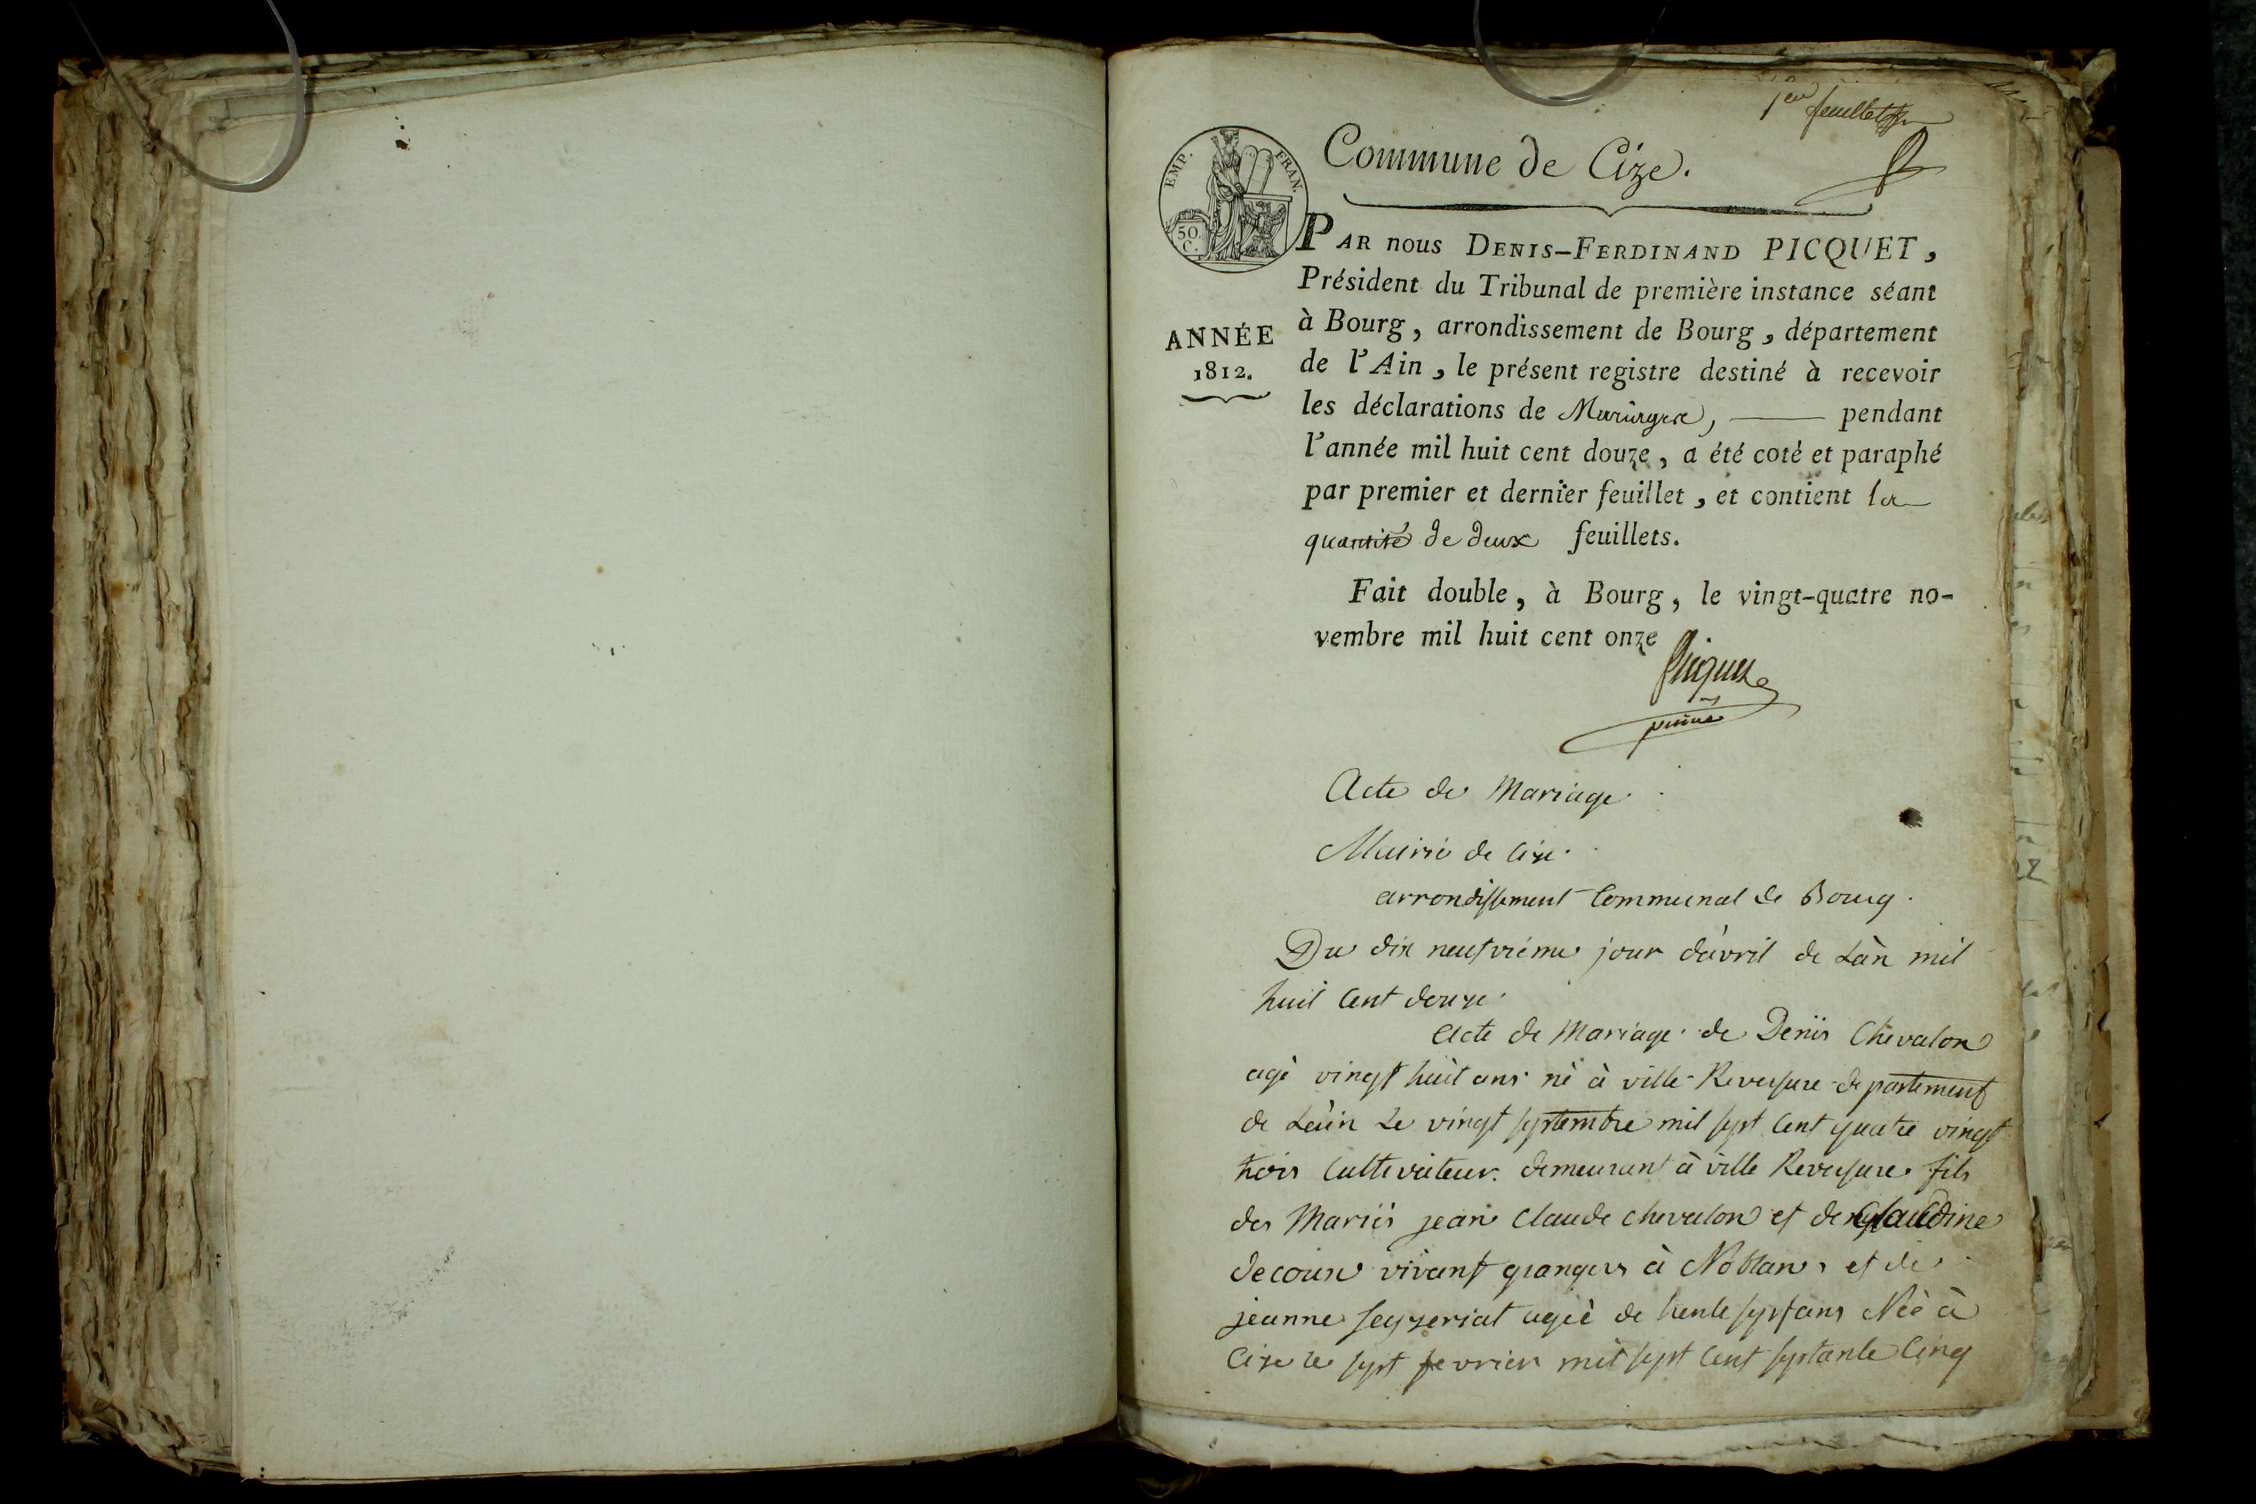 1er feuillet
EMP. FRAN.
50 C.
Commune de Cize.
PAR nous DENIS-FERDINAND PICQUET,
Président du Tribunal de première instance séant
à Bourg, arrondissement de Bourg, département
de l'Ain, le présent registre destiné à recevoir
les déclarations de Mariages, pendant
l'année mil huit cent douze, a été coté et paraphé
par premier et dernier feuillet, et contient la
quantité de deux feuillets.
ANNÉE
1812.
Fait double, à Bourg, le vingt-quatre no-
vembre mil huit cent onze
Picquet
Acte de Mariage
Mairie de Cize.
arrondissement Communal de Bourg.
Du dix neufvième jour d'avril de Làn mil
huit Cent douze.
Acte de Mariage. de Denis Chevalon
agé vingt huit ans né à ville-Reversure departement
de Làin Le vingt septembre mil sept Cent quatre vingt
trois Cultivateur. demeurant à ville Reversure. fils
des Mariés jean Claude chevalon et de Claudine
decoure vivant grangers à Noblans et de
jeanne Seyzeriat agéé de trente sept ans Néé à
Cize le sept fevrier mil sept Cent septante Cinq